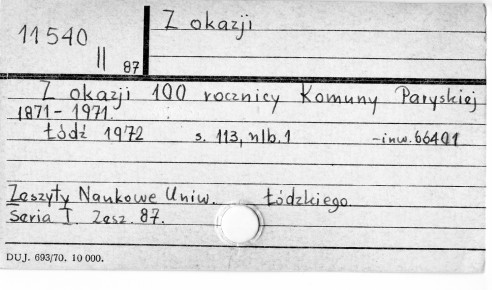 11540
II
87
Z okazji
Z okazji 100 rocznicy Komuny Paryskiej
1871-1971.
Łódź 1972 s. 113, nlb. 1 -inw. 66401
Zeszyty Naukowe Uniw. Łódzkiego.
Seria I. Zesz. 87.
DUJ. 693/70. 10 000.